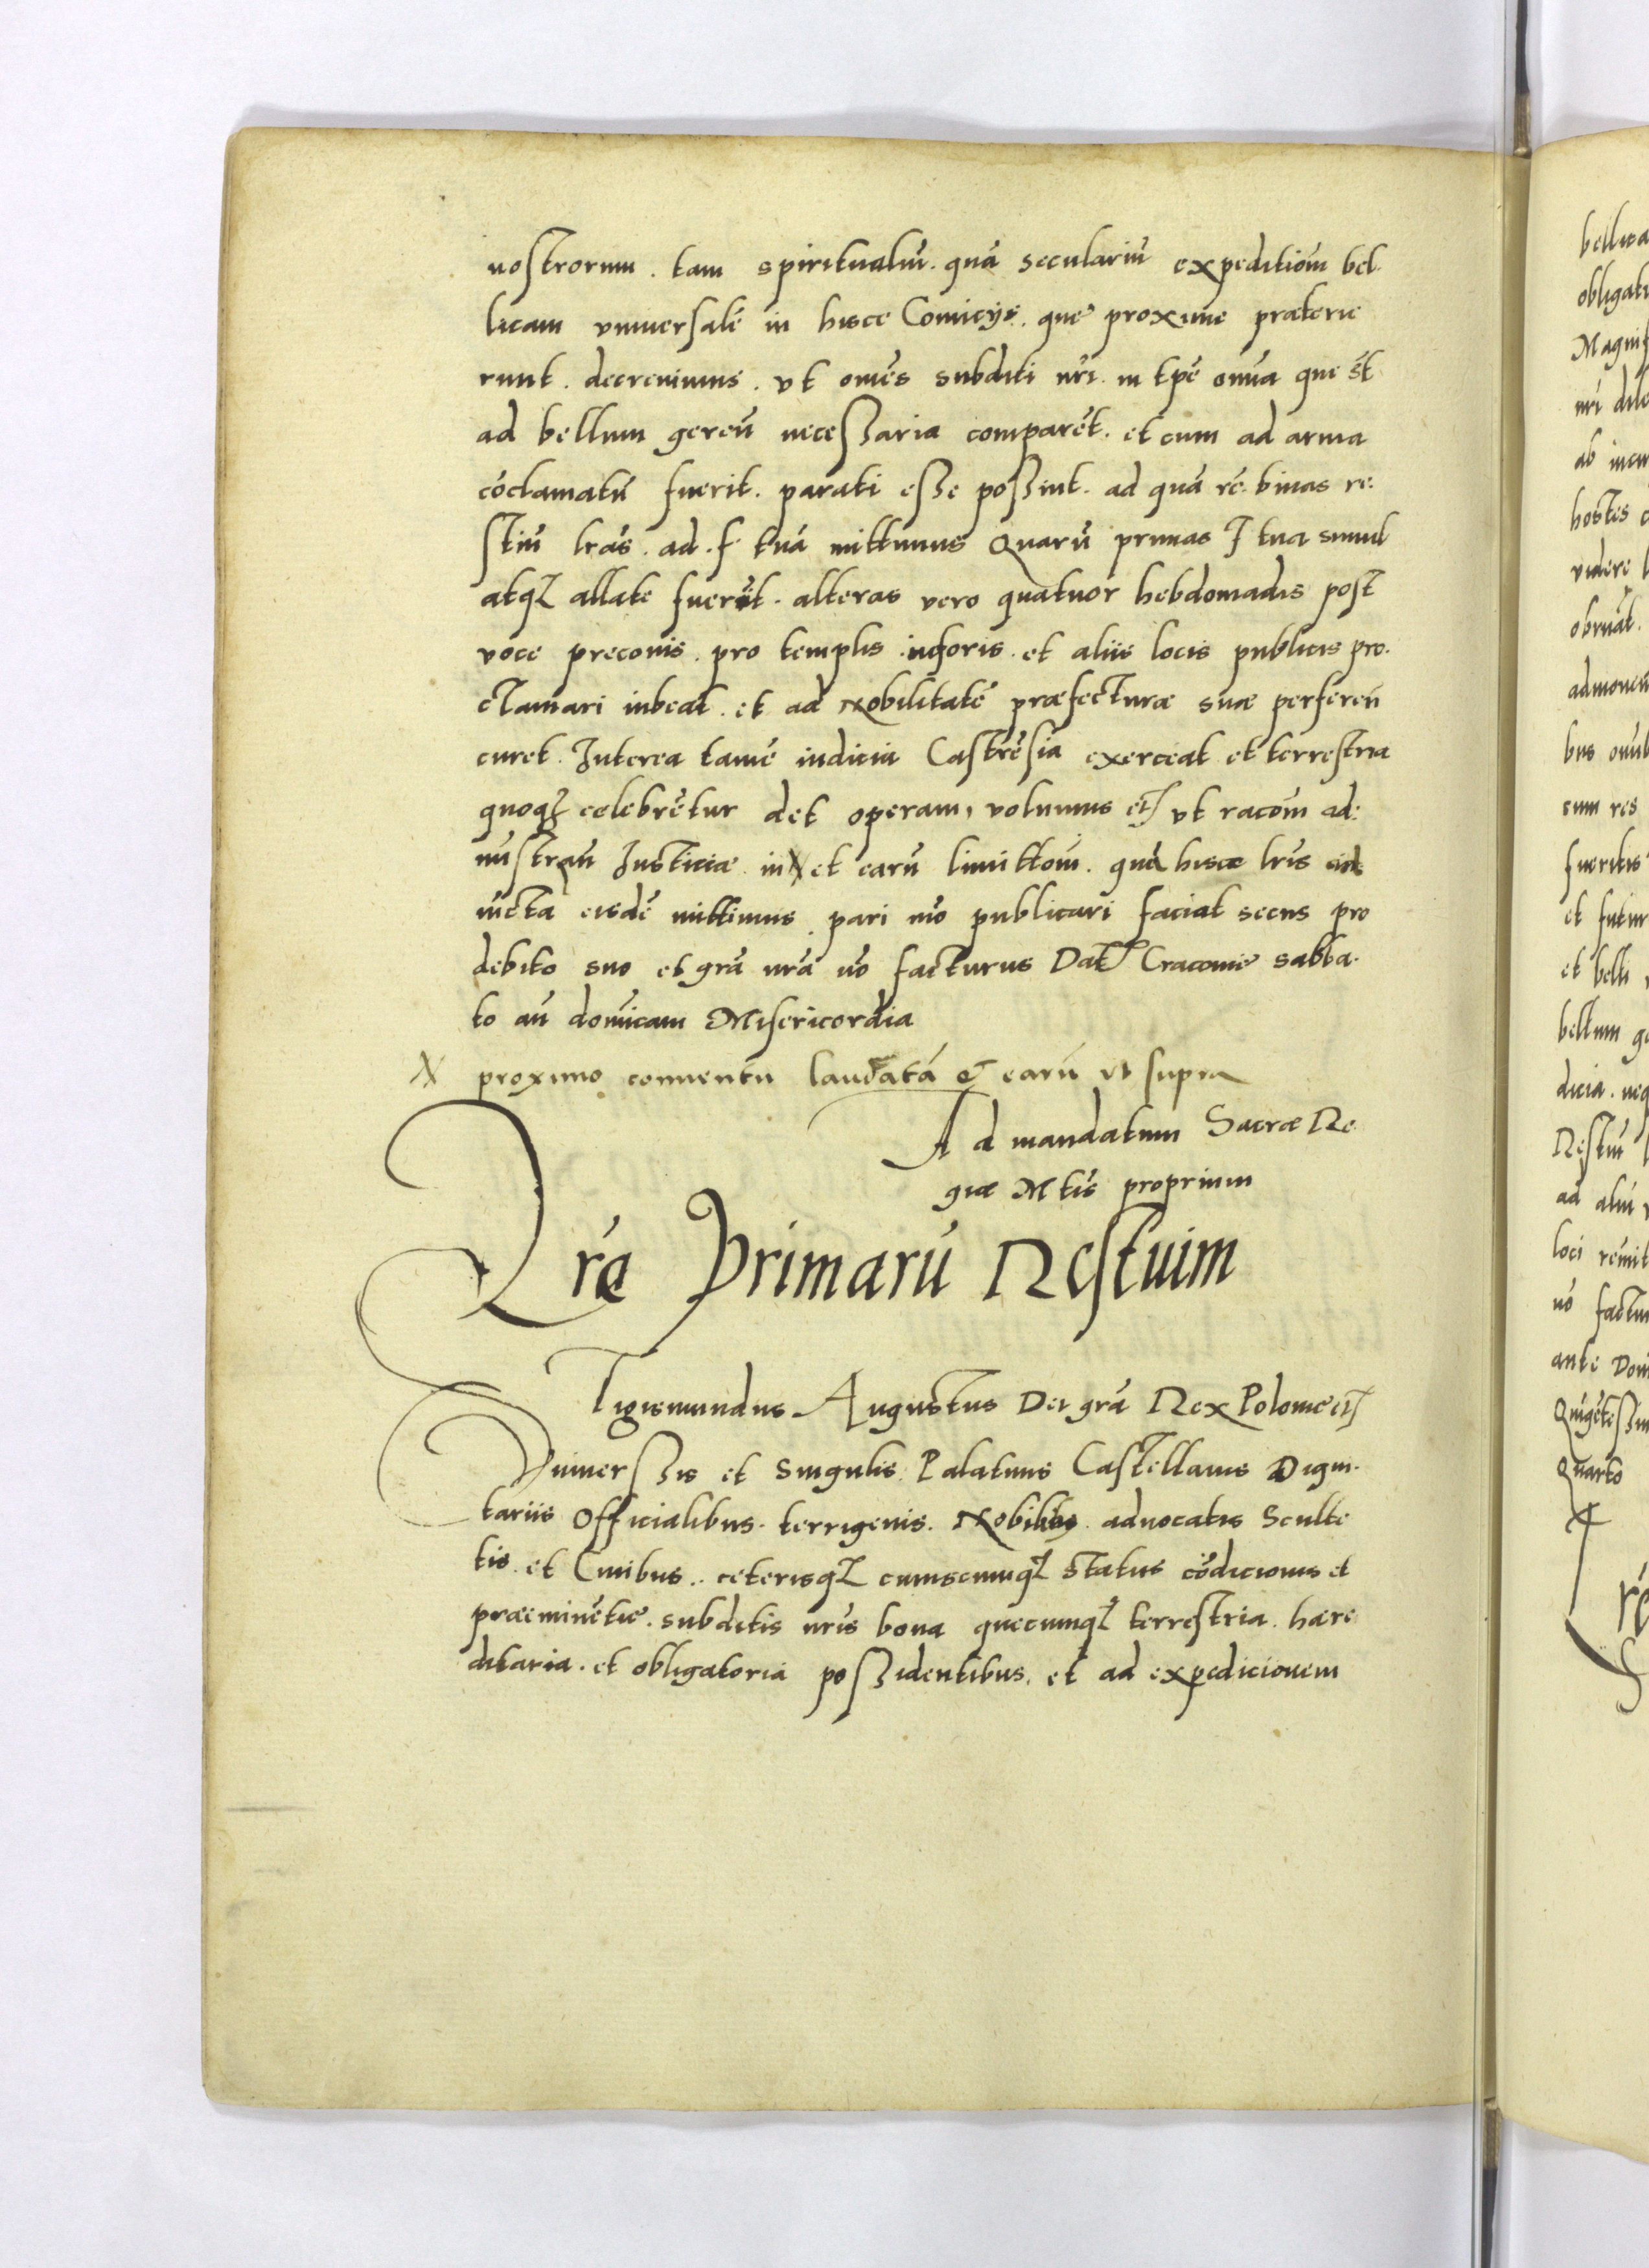 nostrorum . tam spiritualiũ . quã seculariũ expeditiõm bel
licam vniuersalẽ in hisce Comicijs . que proxime præterie
runt . decreuimus . vt om̃es subditi nr̃i . in tp̃e om̃ia que st̃
ad bellum gereñ necessaria comparẽt . et cum ad arma
cõclamatũ fuerit . parati esse possint . ad quã rẽ . binas re
stiũ lr̃as . ad . f . tuã mittimus Quarũ primas f tua simul
atq allate fuerĩt . alteras vero quatuor hebdomadis post
voce preconis . pro templis . in foris . et aliis locis publicis pro
clamari iubeat . et ad Nobilitatẽ præfecturæ suæ pereferen̄
curet . Interea tamẽ iudicia Castrẽsia exerceat et terrestria
quoq celebrẽtur det operam, volumus etc vt racõm ad
mĩstran̄ Iusticiæ in X et earũ limittõm . quã hisce lr̃is
iũcta eisdẽ mittimus . pari mõ publicari faciat secus pro
debito suo et grã nr̃a nõ facturus Dat Cracovie sabba
to an̄ domĩcam Misericordia
X proximo conuentu laudatã et earũ vt supra
Ad mandatum Sacræ Re
giæ Mtis proprium
Lr̃e Primarũ Restuim
Sigismundus Augustus Dei grã Rex Polonie etc
Vniuersis et Singulis Palatinis Castellanis Digni
tariis Officialibus . terrigenis . Nobilibus . aduocatis Sculte
tis . et Ciuibus . ceterisq cuiuscumq status cõdicionis et
præeminẽtie . subditis nr̃is bona quecumq terrestria . hære
ditaria . et obligatoria possidentibus . et ad expedicionem
obligati
hostes
videre
obruãt
dicia . neq
bellum
fueritis
ante Dom
Quarto